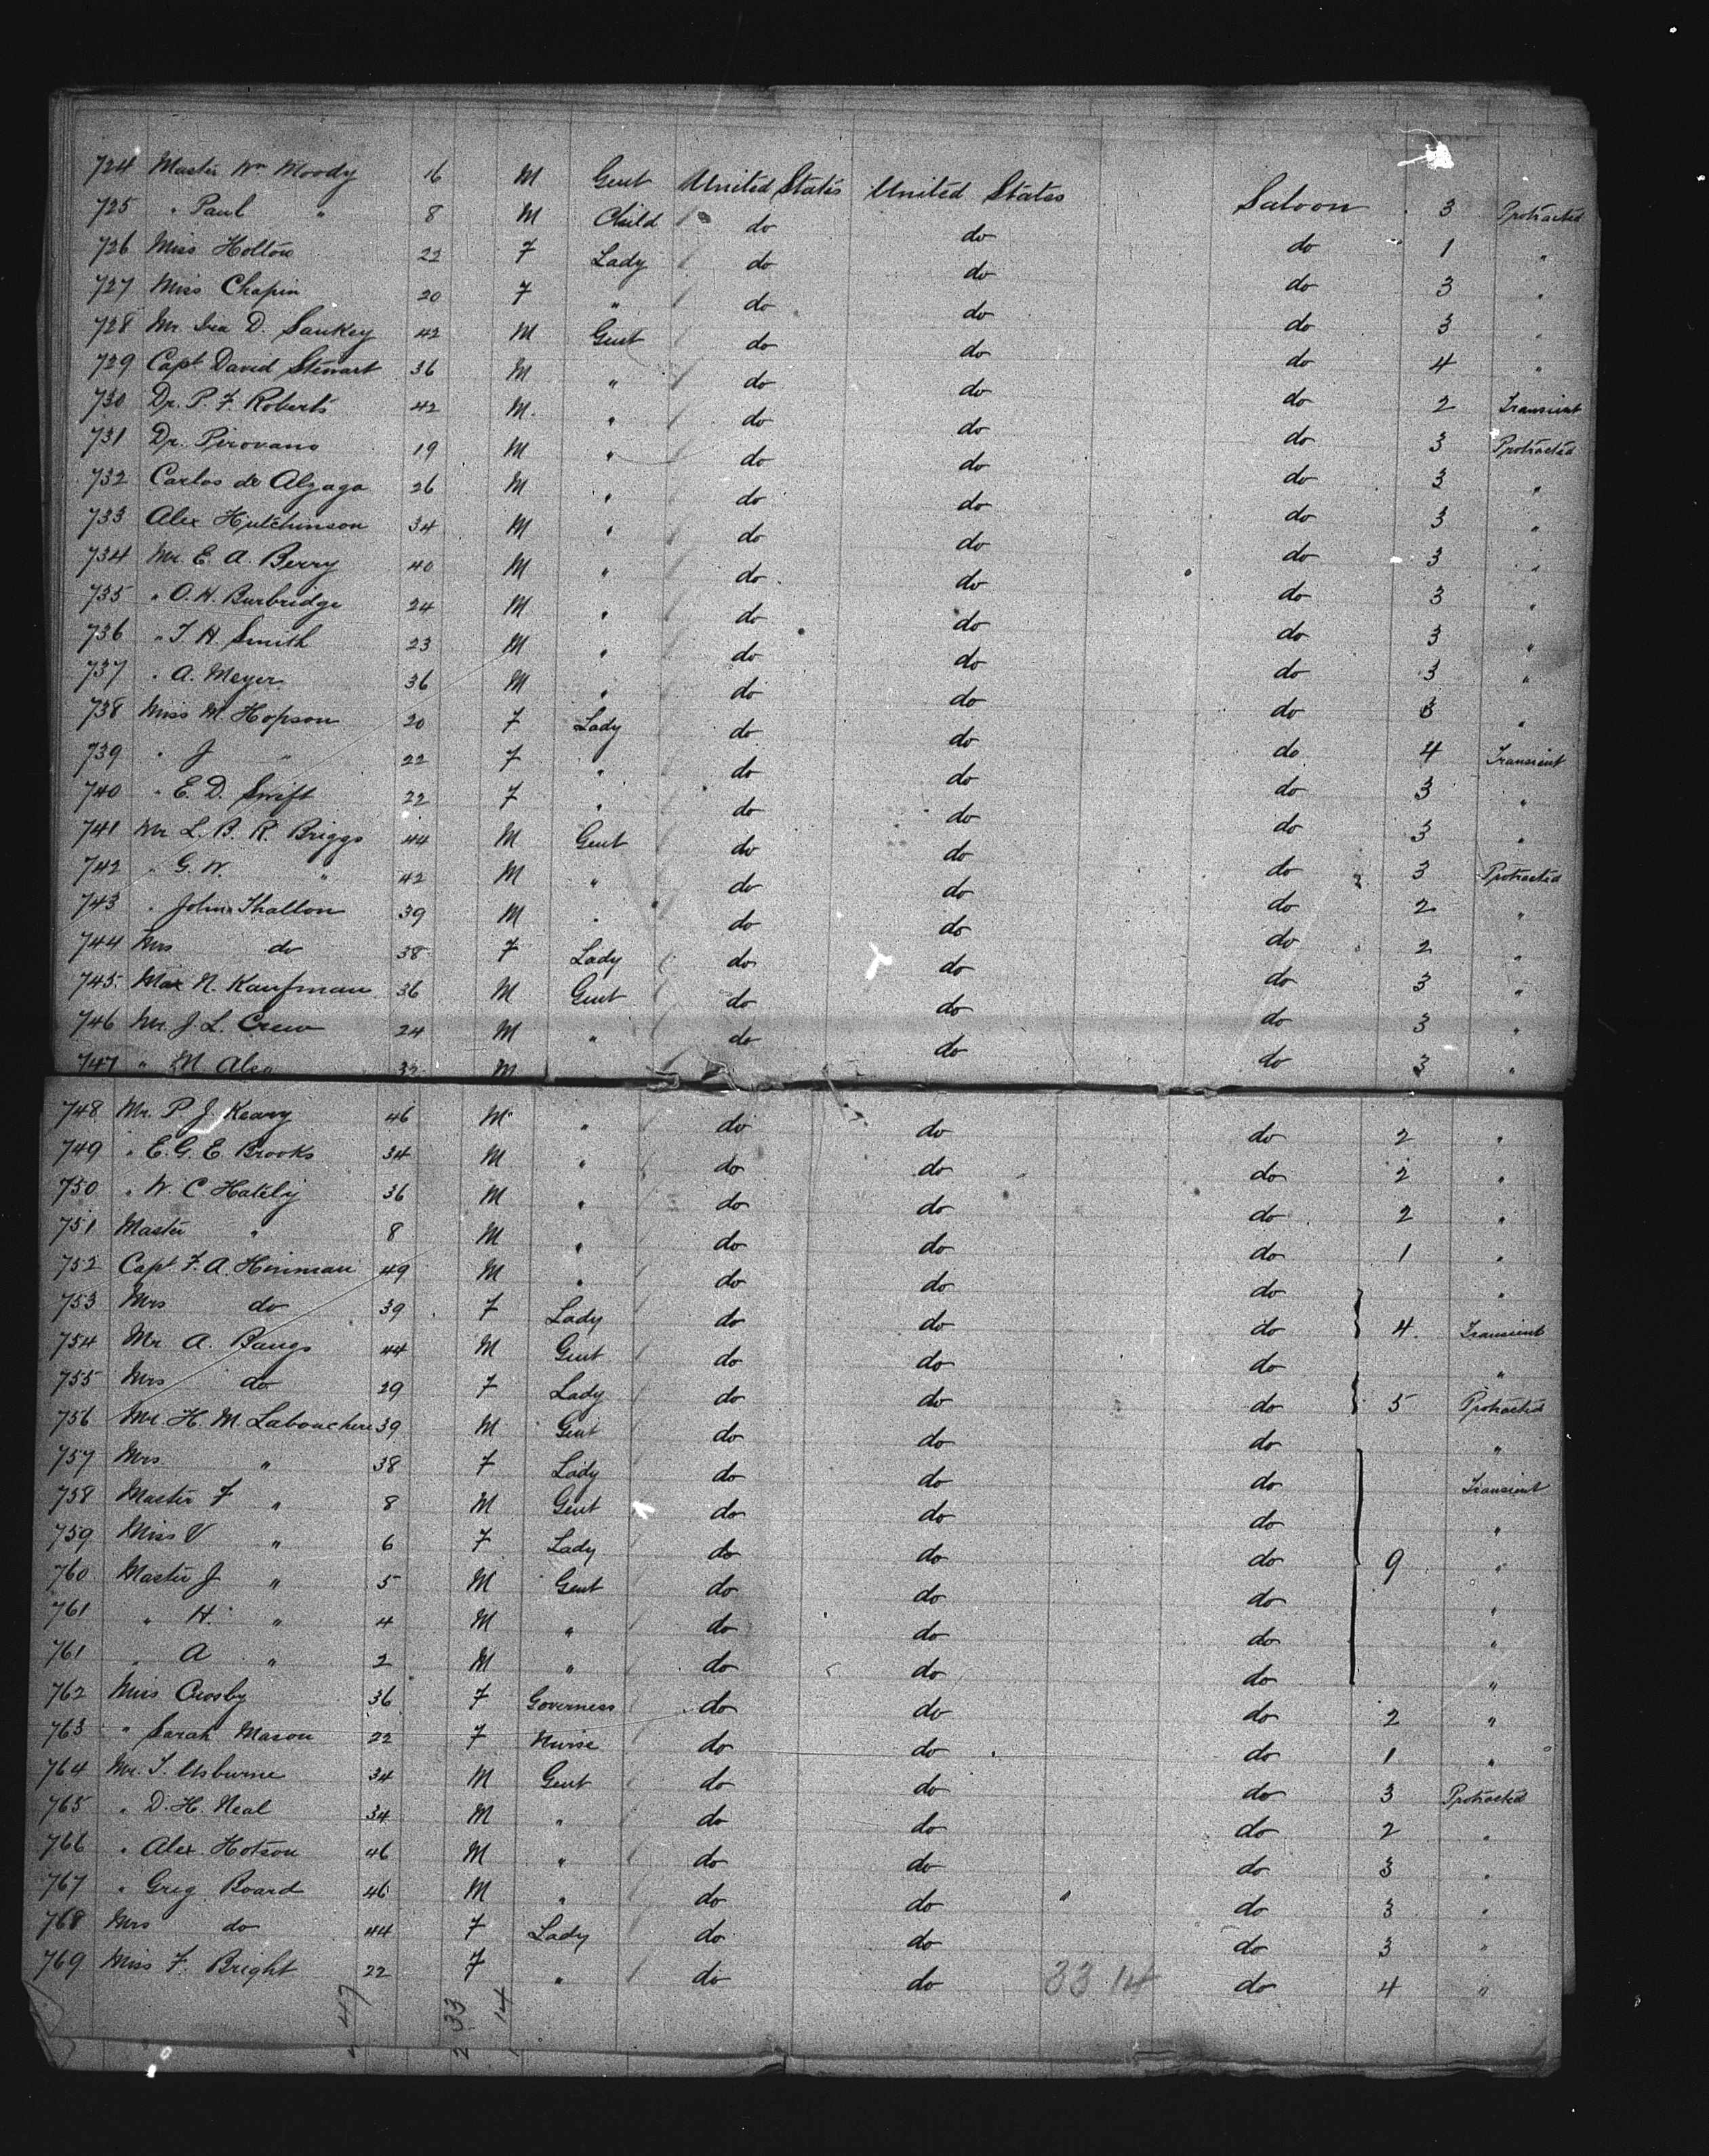 724 Master Wm Moody 16 M Gent United States United States Saloon 3 Protracted
725 " Paul " 8 M Child do do do 1 "
726 Miss Holton 22 F Lady do do do 3 "
727 Miss Chapin 20 F " do do do 3 "
728 Mr Ira D. Sankey 42 M Gent do do do 4 "
729 Capt David Stewart 36 M " do do do 2 Transient
730 Dr. P. F. Roberts 42 M. " do do do 3 Protracted
731 Dr. Pirovano 19 M " do do do 3 "
732 Carlos de Alzaga 26 M " do do do 3 "
733 Alex Hutchinson 34 M " do do do 3 "
734 Mr. E. A. Berry 40 M " do do do 3 "
735 " O. H. Burbridge 24 M " do do do 3 "
736 " T. H. Smith 23 M " do do do 3 "
737 " A. Meyer 36 M " do do do 3 "
738 Miss M. Hopson 20 F Lady do do do 4 Transient
739 " J " 22 F " do do do 3 "
740 " E. D. Swift 22 F " do do do 3 "
741 Mr L. B. R. Briggs 44 M Gent do do do 3 Protracted
742 " G. W. " 42 M " do do do 2 "
743 " John Thallon 39 M " do do do 2 "
744 Mrs do 38 F Lady do do do 3 "
745 Max N. Kaufman 36 M Gent do do do 3 "
746 Mr. J. L. Crew 24 M " do do do 3 "
747 " M 32 M
748 Mr. P. J. Keary 46 M " do do do 2 "
749 " E. G. E. Brooks 34 M " do do do 2 "
750 " W. C. Hately 36 M " do do do 2 "
751 Master " 8 M " do do do 1 "
752 Capt. F. A. Hinman 49 M " do do do "
753 Mrs do 39 F Lady do do do 4 Transient
754 Mr A. Bangs 44 M Gent do do do "
755 Mrs do 29 F Lady do do do 5 Protracted
756 Mr. H. M. Labouchere 39 M Gent do do do "
757 Mrs " 38 F Lady do do do Transient
758 Master F " 8 M Gent do do do "
759 Miss V " 6 F Lady do do do 9 "
760 Master J " 5 M Gent do do do "
761 " H. " 4 M " do do do "
761 " A " 2 M " do do do "
762 Miss Crosby 36 F Governess do do do 2 "
763 " Sarah Mason 22 F Nurse do do do 1 "
764 Mr. T. Usburne 34 M Gent do do do 3 Protracted
765 " D. H. Neal 34 M " do do do 2 "
766 " Alex Hotson 46 M " do do do 3 "
767 " Greg Board 46 M " do do do 3 "
768 Mrs do 44 F Lady do do do 3 "
769 Miss F. Bright 22 F " do do do 4 "
33 14
47
33
14